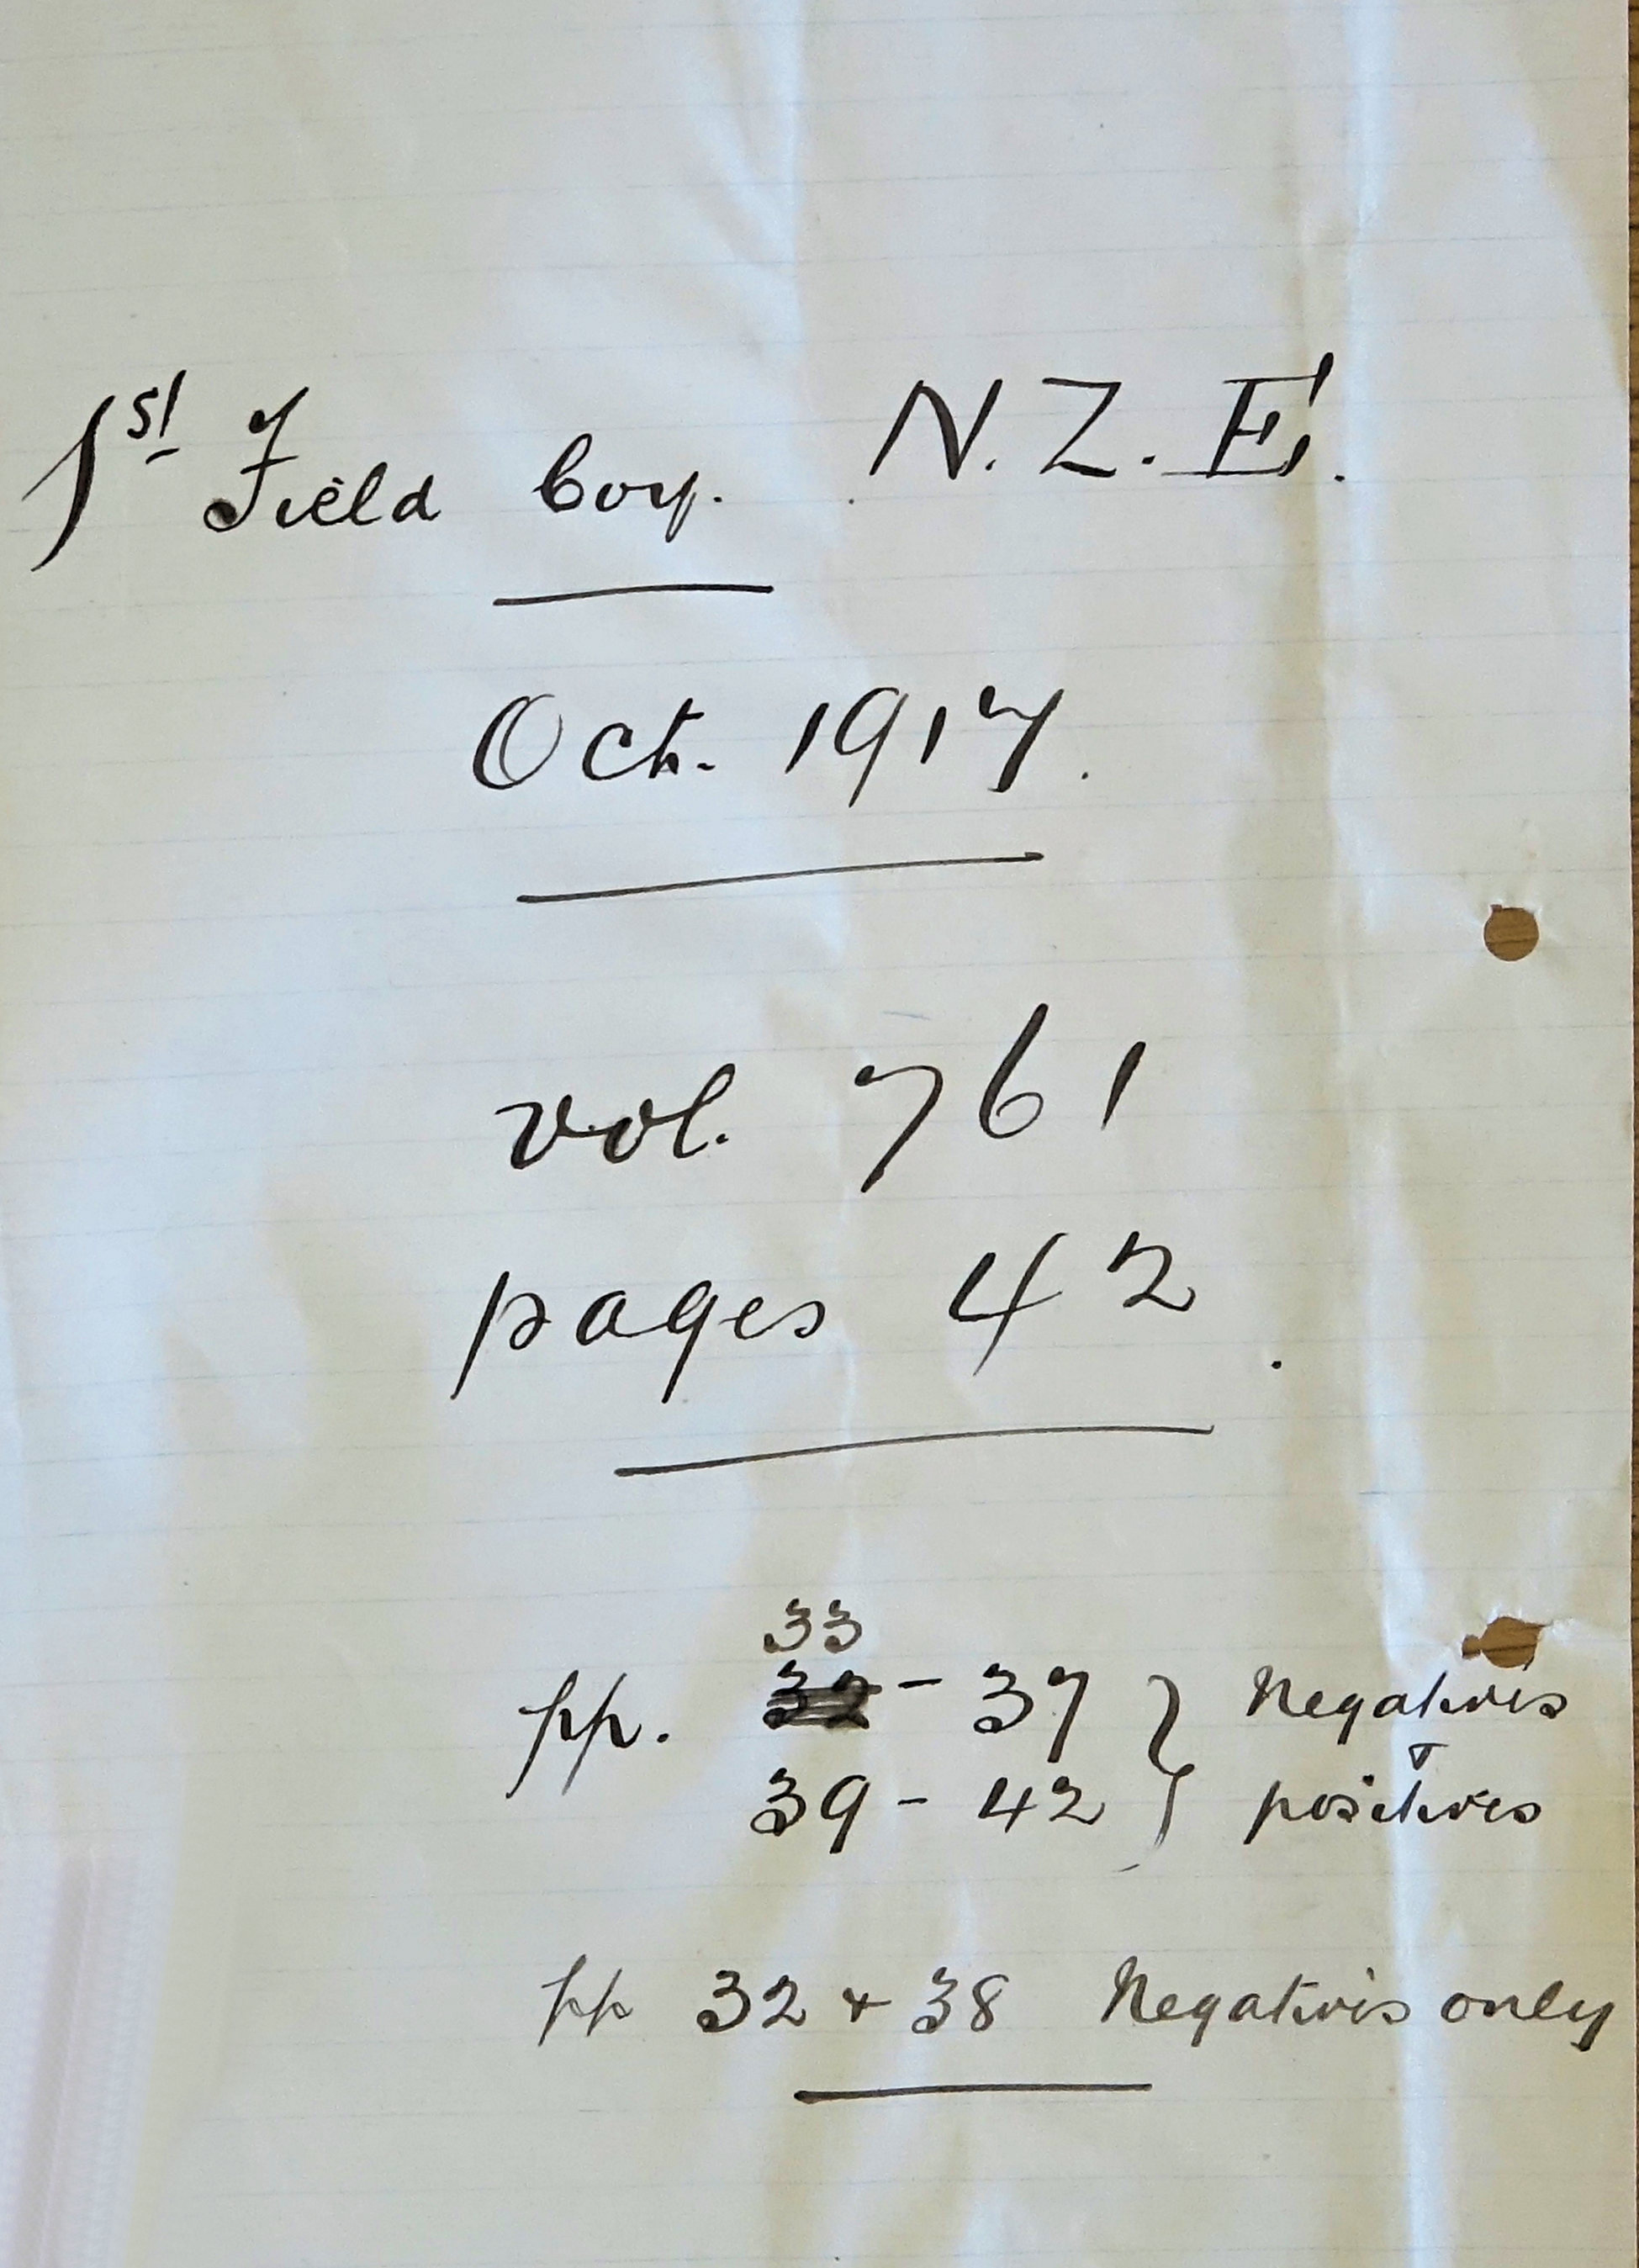 1st Field Coy. N.Z.E.
Oct. 1917.
vol. 761
pages 42.
33
pp. 32 - 37 } Negatives
+
39 - 42 } positives
pp 32 + 38 Negatives only